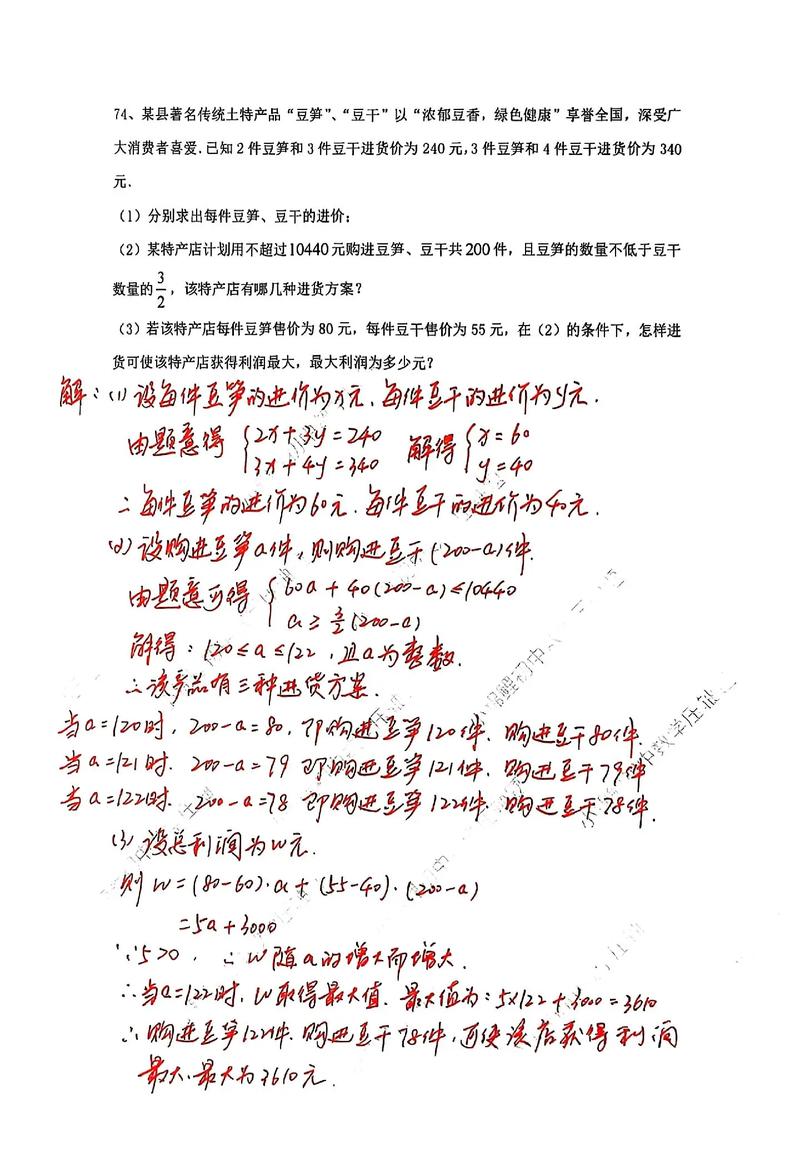 74、某县著名传统土特产品“豆笋”、“豆干”以“浓郁豆香，绿色健康”享誉全国，深受广
大消费者喜爱.已知2件豆笋和3件豆干进货价为240元,3件豆笋和4件豆干进货价为340
元.
（1）分别求出每件豆笋、豆干的进价;
（2）某特产店计划用不超过10440元购进豆笋、豆干共200件，且豆笋的数量不低于豆干
数量的3/2，该特产店有哪几种进货方案？
（3）若该特产店每件豆笋售价为80元，每件豆干售价为55元，在（2）的条件下，怎样进
货可使该特产店获得利润最大，最大利润为多少元？
解：(1) 设每件豆笋的进价为x元、每件豆干的进价为y元.
由题意得 {2x+3y=240 3x+4y=340 解得 {x=60 y=40
∴每件豆笋的进价为60元.每件豆干的进价为40元.
(2) 设购进豆笋a件，则购进豆干(200-a)件.
由题意可得 {60a+40(200-a)≤10440 a≥3/2(200-a)
解得：120≤a≤122，且a为整数.
∴该产品有三种进货方案.
当a=120时，200-a=80，即购进豆笋120件、购进豆干80件.
当a=121时.200-a=79 即购进豆笋121件.购进豆干79件
当a=122时.200-a=78 即购进豆笋122件.购进豆干78件.
(3) 设总利润为W元.
则W=(80-60)·a+(55-40)·(200-a)
=5a+3000
∵5>0，∴W随a的增大而增大.
∴当a=122时，W取得最大值.最大值为：5×122+3000=3610
∴购进豆笋122件.购进豆干78件，可使该店获得利润
最大.最大为3610元.